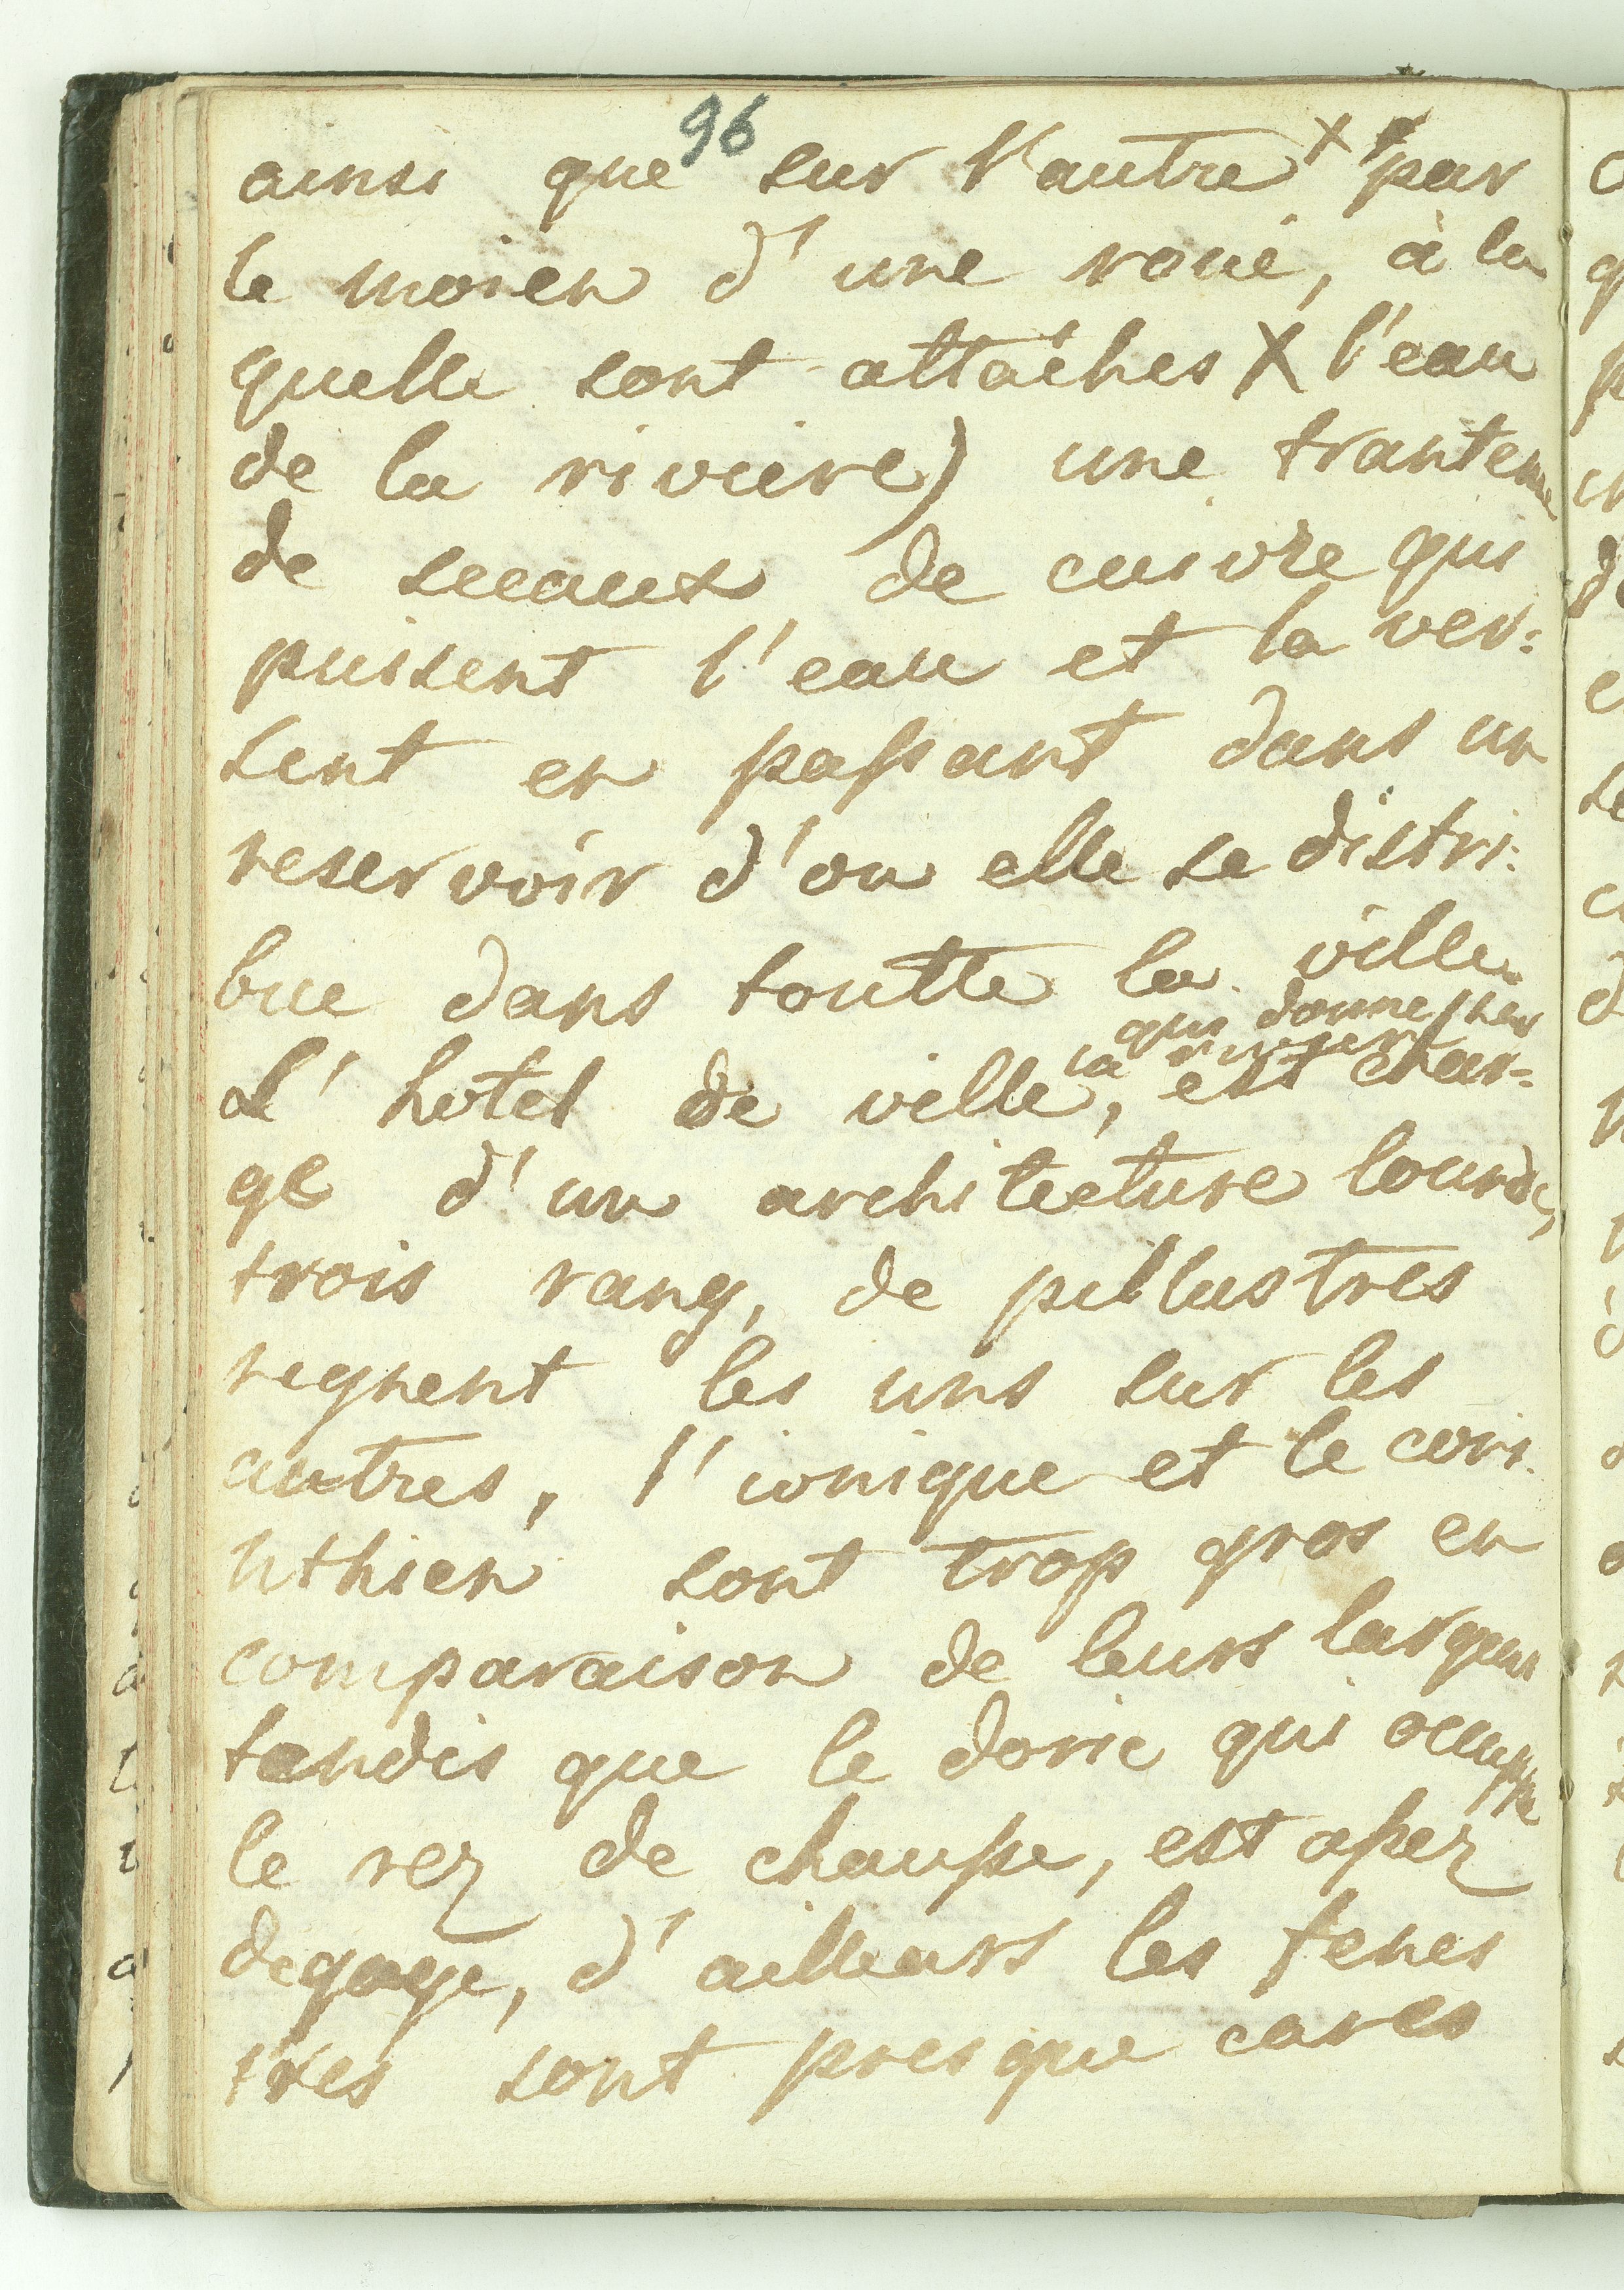 96
ainsi que sur l'autre x par
le moien d'une roue, à la
quelle sont attachés X l'eau
de la riviere) une trantene
de seeaux de cuivre qui
puisent l'eau et la ver:
sent en passant dans un
reservoir d'ou elle se distri:
bue dans toutte la ville.
qui donne sur
la riviere
L'hotel de ville, est char:
gé d'un architecture lourde,
trois rang, de pillastres
regnent les uns sur les
autres, l'ionique et le cori
nthien sont trop gros en
comparaison de leurs largeur
tandis que le doric qui occuppe
le rez de chaussé, est assez
degagé, d'ailleurs les fenes
tres sont presque cares